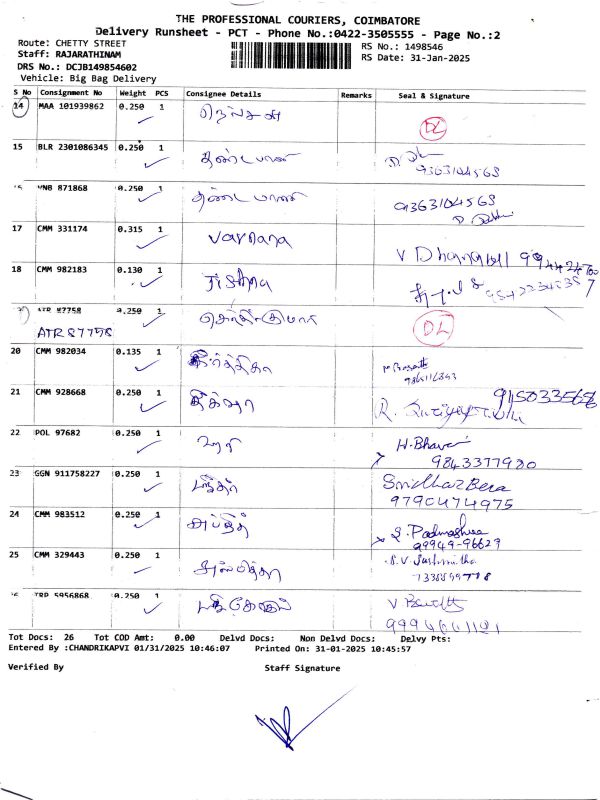 THE PROFESSIONAL COURIERS, COIMBATORE
Delivery Runsheet - PCT - Phone No.:0422-3505555 - Page No.:2
Route: CHETTY STREET
RS No.: 1498546
Staff: RAJARATHINAM
RS Date: 31-Jan-2025
DRS No.: DCJB149854602
Vehicle: Big Bag Delivery
S No Consignment No Weight PCS Consignee Details Remarks Seal & Signature
14 MAA 101939862 0.250 1 நெல்சன் DL
15 BLR 2301086345 0.250 1 தண்டபாணி
9363104563
VNB 871868 0.250 1 தண்டபாணி 9363104563
17 CMM 331174 0.315 1 varnana V Dhanabal
18 CMM 982183 0.130 1 Jishna
ATR 87758 0.250 1 DL
ATR 87758
20 CMM 982034 0.135 1 கீர்த்திகா
21 CMM 928668 0.250 1 தீக்ஷா
22 POL 97682 0.250 1 H.Bhavani
9843377980
23 GGN 911758227 0.250 1 Sridhar Bera
9790474975
24 CMM 983512 0.250 1 S. Padmashree
99949-96629
25 CMM 329443 0.250 1
TRP 5956868 0.250 1
Tot Docs: 26 Tot COD Amt: 0.00 Delvd Docs: Non Delvd Docs: Delvy Pts:
Entered By :CHANDRIKAPVI 01/31/2025 10:46:07 Printed On: 31-01-2025 10:45:57
Verified By Staff Signature